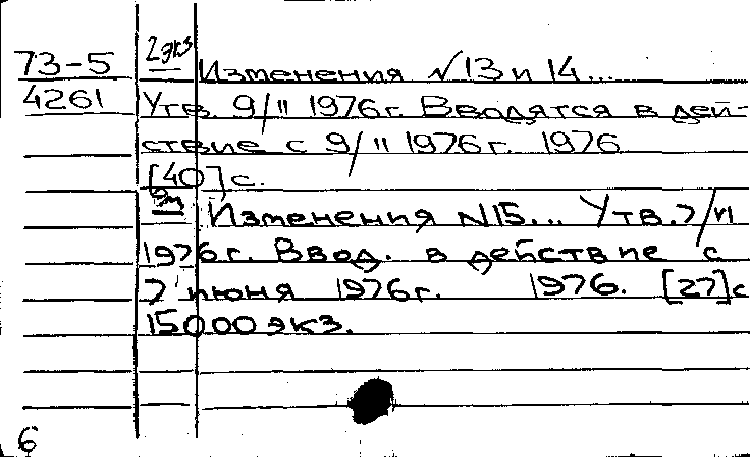 2 экз
73-5 Изменения №13 и 14...
4261 Утв. 9/II 1976г. Вводятся в дей-
ствие с 9/II 1976г. 1976
[40] с.
Изменения №15... Утв. 7/VI
1976г. Ввод. в действие с
7 июня 1976г. 1976. [27] с
15000 экз.
6